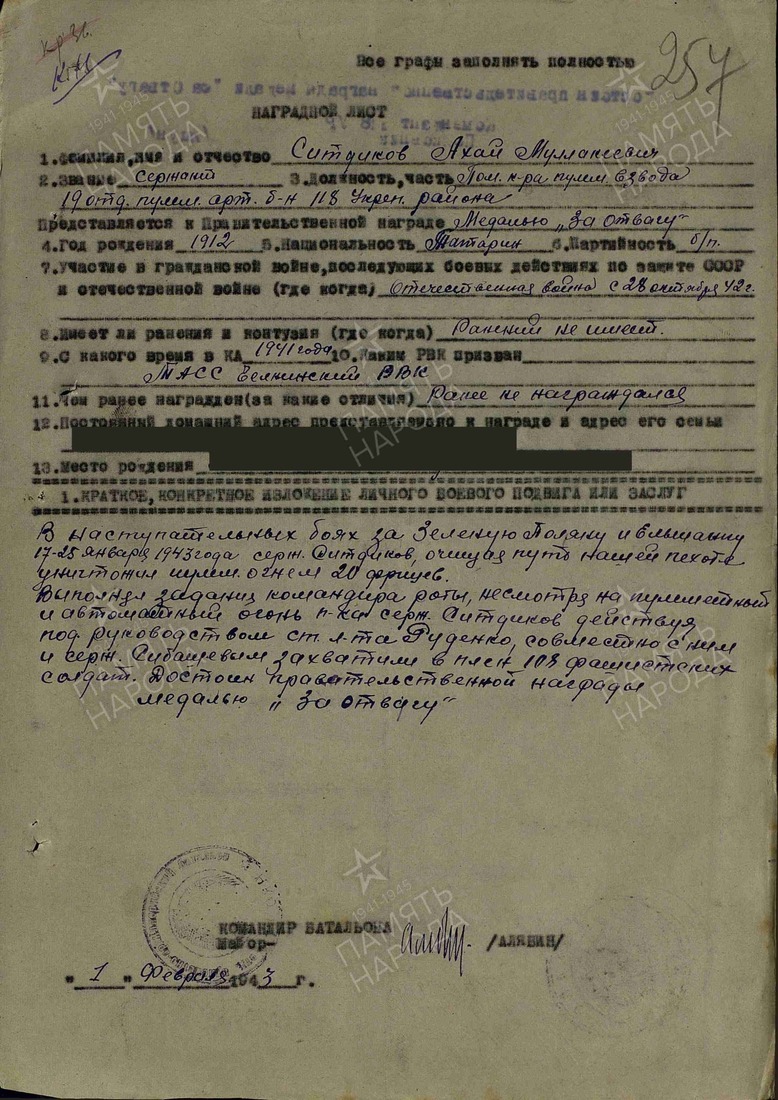 257
Все графы заполнять полностью
НАГРАДНОЙ ЛИСТ
1.Фамилия,имя и отчество Ситдиков Ахай Муллакевич
2.Звание сержант 3.Должность,часть Пом. к-ра пулем. взвода
19 отд. пулем. арт. б-н 118 Укреп. района
Представляется к Правительственной награде Медалью „За отвагу"
4.Год рождения 1912 5.Национальность Татарин 6.Партийность б/п.
7.Участие в гражданской войне,последующих боевых действиях по защите СССР
и отечественной войне (где когда) Отечественная война с 28 октября 42 г.
8.Имеет ли ранения и контузия (где когда) Ранений не имеет.
9.С какого время в КА 1941 года 10.Каким РВК призван
ТАСС РВК
11.Чем ранее награжден(за какие отличия) Ранее не награждался
12.Постоянный домашний адрес представляемого к награде и адрес его семьи
13.Место рождения
1.КРАТКОЕ,КОНКРЕТНОЕ ИЗЛОЖЕНИЕ ЛИЧНОГО БОЕВОГО ПОДВИГА ИЛИ ЗАСЛУГ
В наступательных боях за Зеленую Поляну и Ельшанку
17-25 января 1943 года серж. Ситдиков, очищая путь нашей пехоте
уничтожил пулем. огнем 20 фрицев.
Выполняя задания командира роты, несмотря на пулеметный
и автоматный огонь п-ка серж. Ситдиков действуя
под руководством ст. л-та Руденко, совместно с ним
и серж. Субашевым захватили в плен 108 фашистских
солдат. Достоин правительственной награды
медалью „За отвагу"
КОМАНДИР БАТАЛЬОНА
Майор- /АЛЯБИН/
"1" Февраля 1943 г.
1941-1945
ПАМЯТЬ
НАРОДА